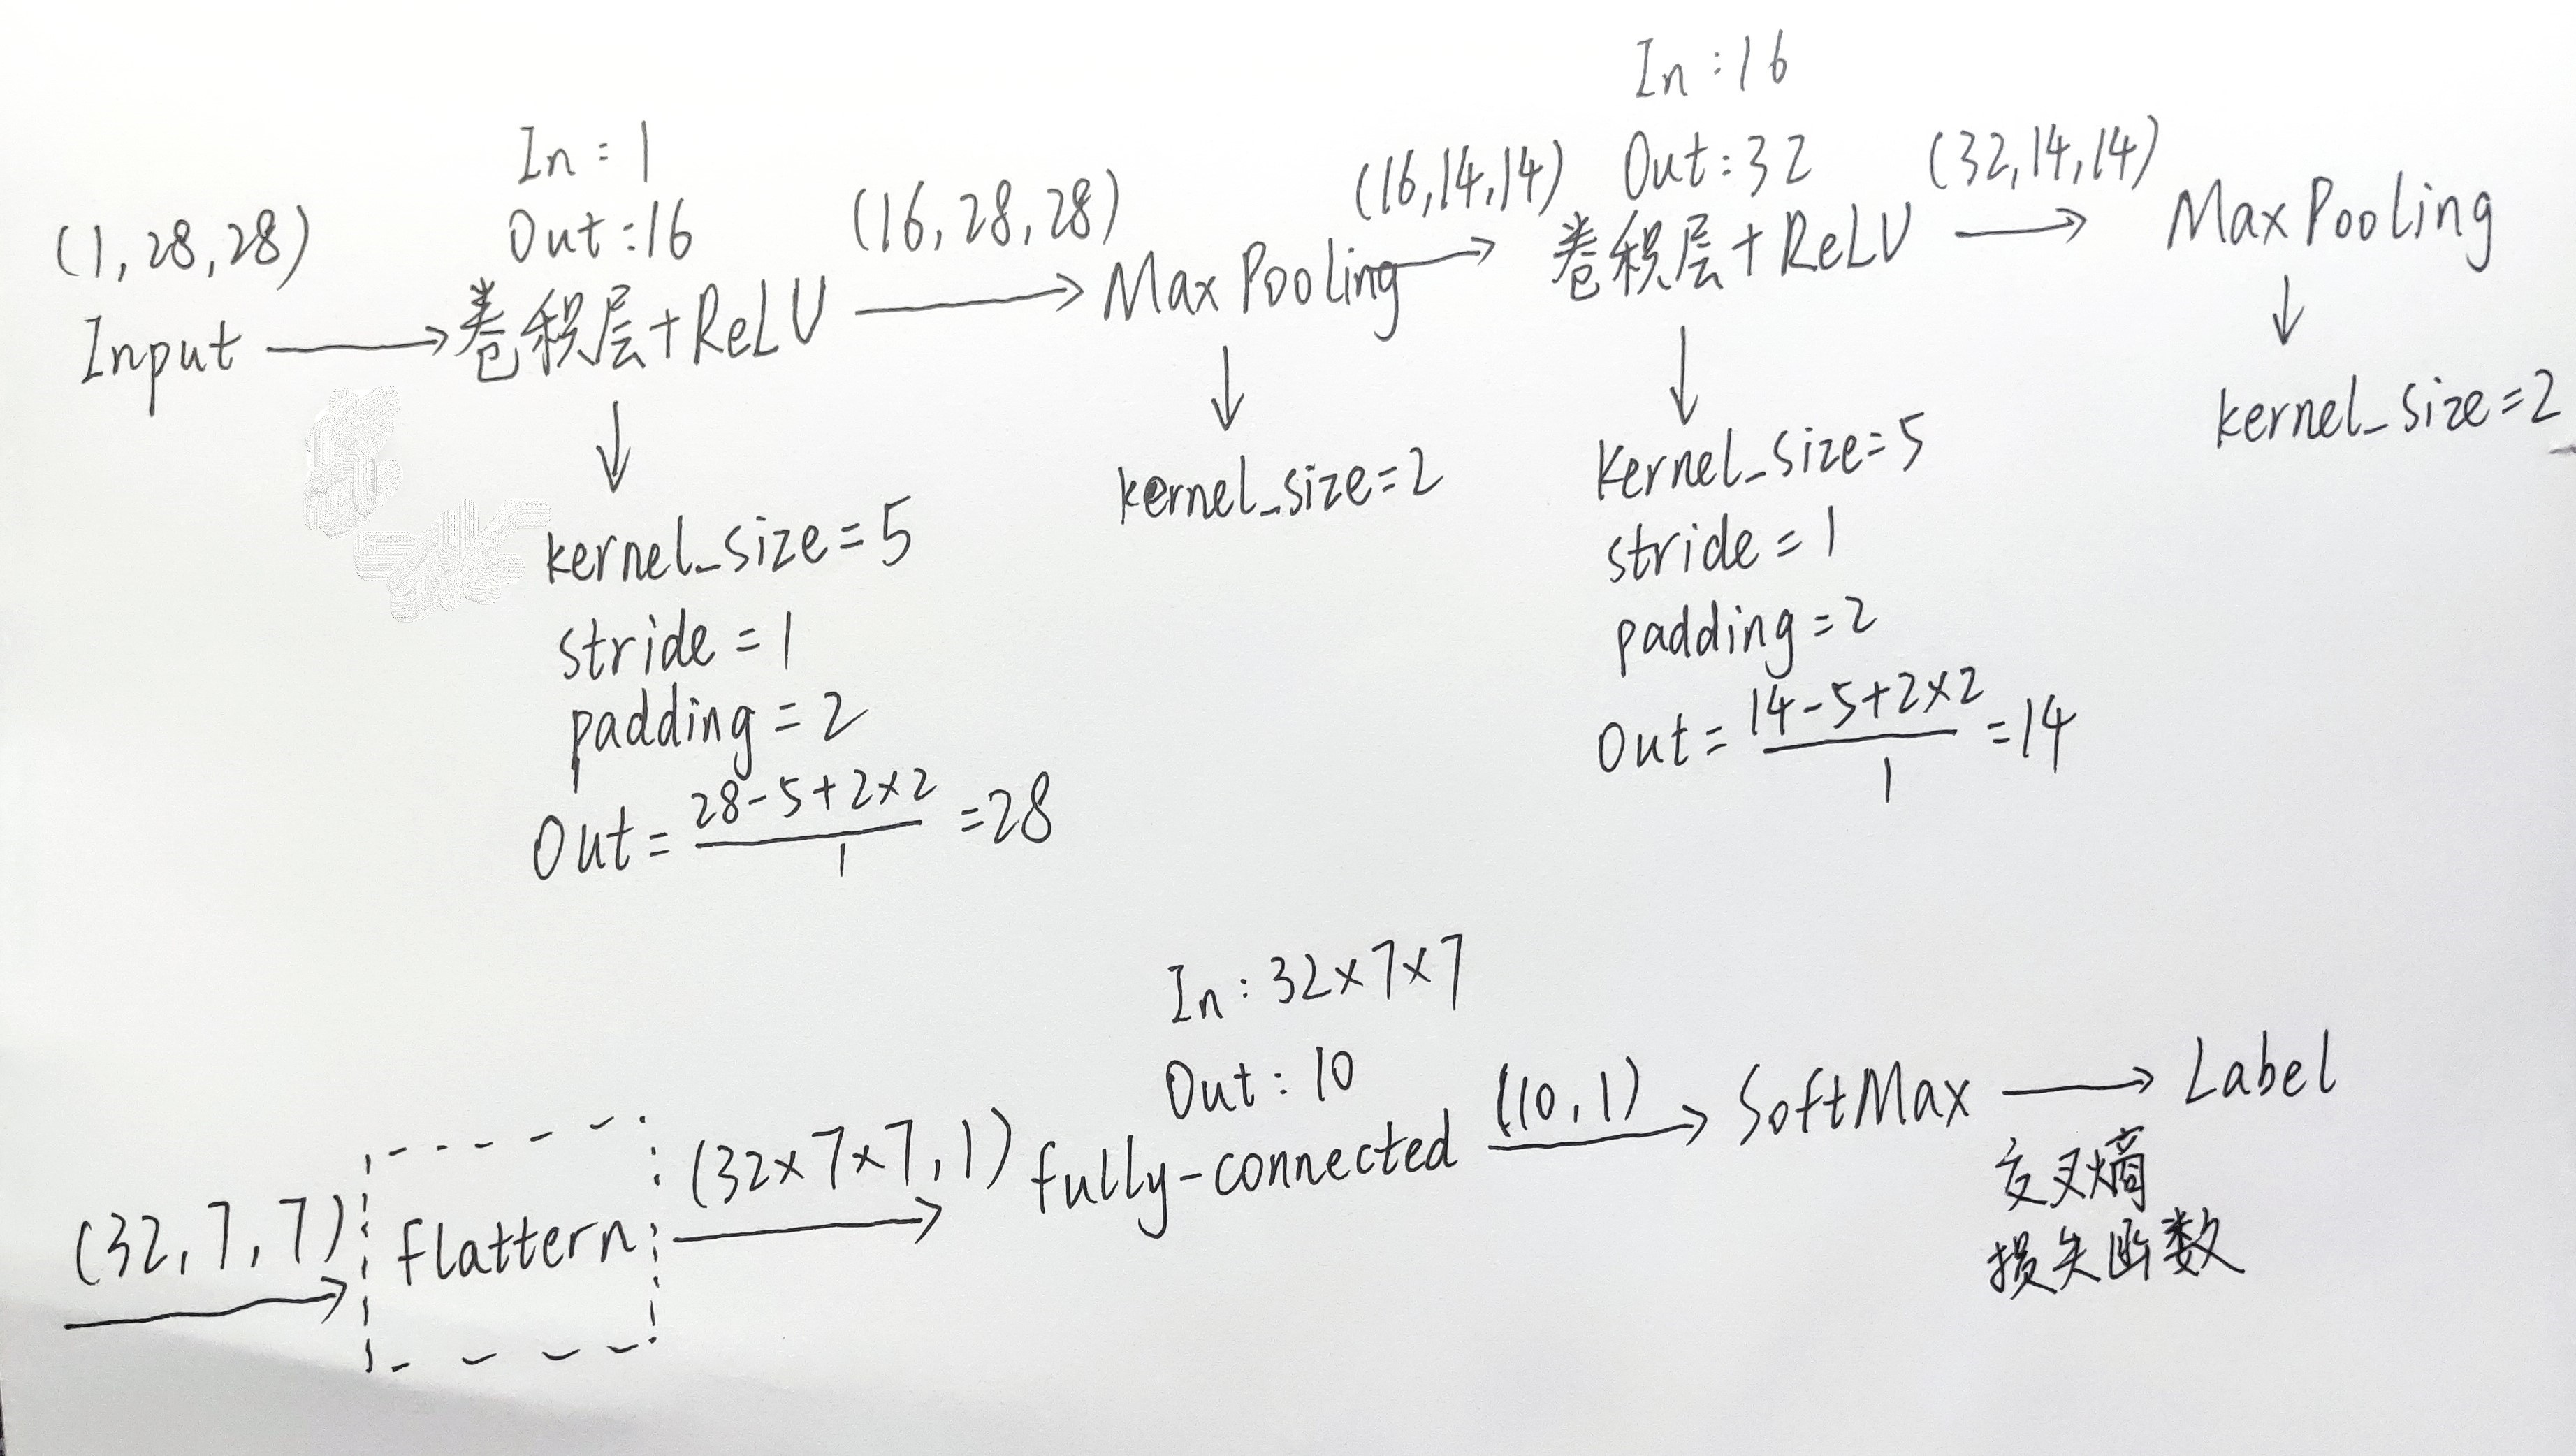 (1,28,28)
Input
In = 1
Out:16
卷积层+ReLU
kernel_size=5
stride=1
padding=2
Out=28-5+2×2/1=28
(16,28,28)
MaxPooling
kernel_size=2
(16,14,14)
In:16
Out:32
卷积层+ReLU
kernel_size=5
stride=1
padding=2
Out=14-5+2×2/1=14
(32,14,14)
MaxPooling
kernel_size=2
(32,7,7)
flattern
(32×7×7,1)
In:32×7×7
Out:10
fully-connected
(10,1)
SoftMax
Label
交叉熵
损失函数